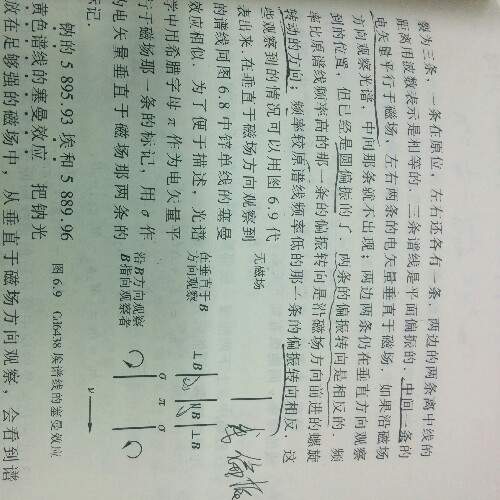 裂为三条，一条在原位，左右还各有一条，两边的两条离中线的
距离用波数表示是相等的，三条谱线是平面偏振的．中间一条的
电矢量平行于磁场，左右两条的电矢量垂直于磁场．如果沿磁场
方向观察光谱，中间那条就不出现；两边两条仍在垂直方向观察
到的位置，但已经是圆偏振的了．两条的偏振转向是相反的．频
率比原谱线频率高的那一条的偏振转向是沿磁场方向前进的螺旋
转动的方向；频率较原谱线频率低的那一条的偏振转向相反．这
些观察到的情况可以用图6.9代
表出来．在垂直于磁场方向观察到
的谱线同图6.8中锌单线的塞曼
效应相似．为了便于描述，光谱
学中用希腊字母π作为电矢量平
行于磁场那一条的标记，用σ作
为电矢量垂直于磁场那两条的
标记．
钠的5 895.93埃和5 889.96
黄色谱线的塞曼效应 把钠光
放在足够强的磁场中，从垂直于磁场方向观察，会看到谱
无磁场
在垂直于B
方向观察
⊥B
∥B
⊥B
σ π σ
沿B方向观察
B指向观察者
ν
图6.9 Cd6438埃谱线的塞曼效应
偏振